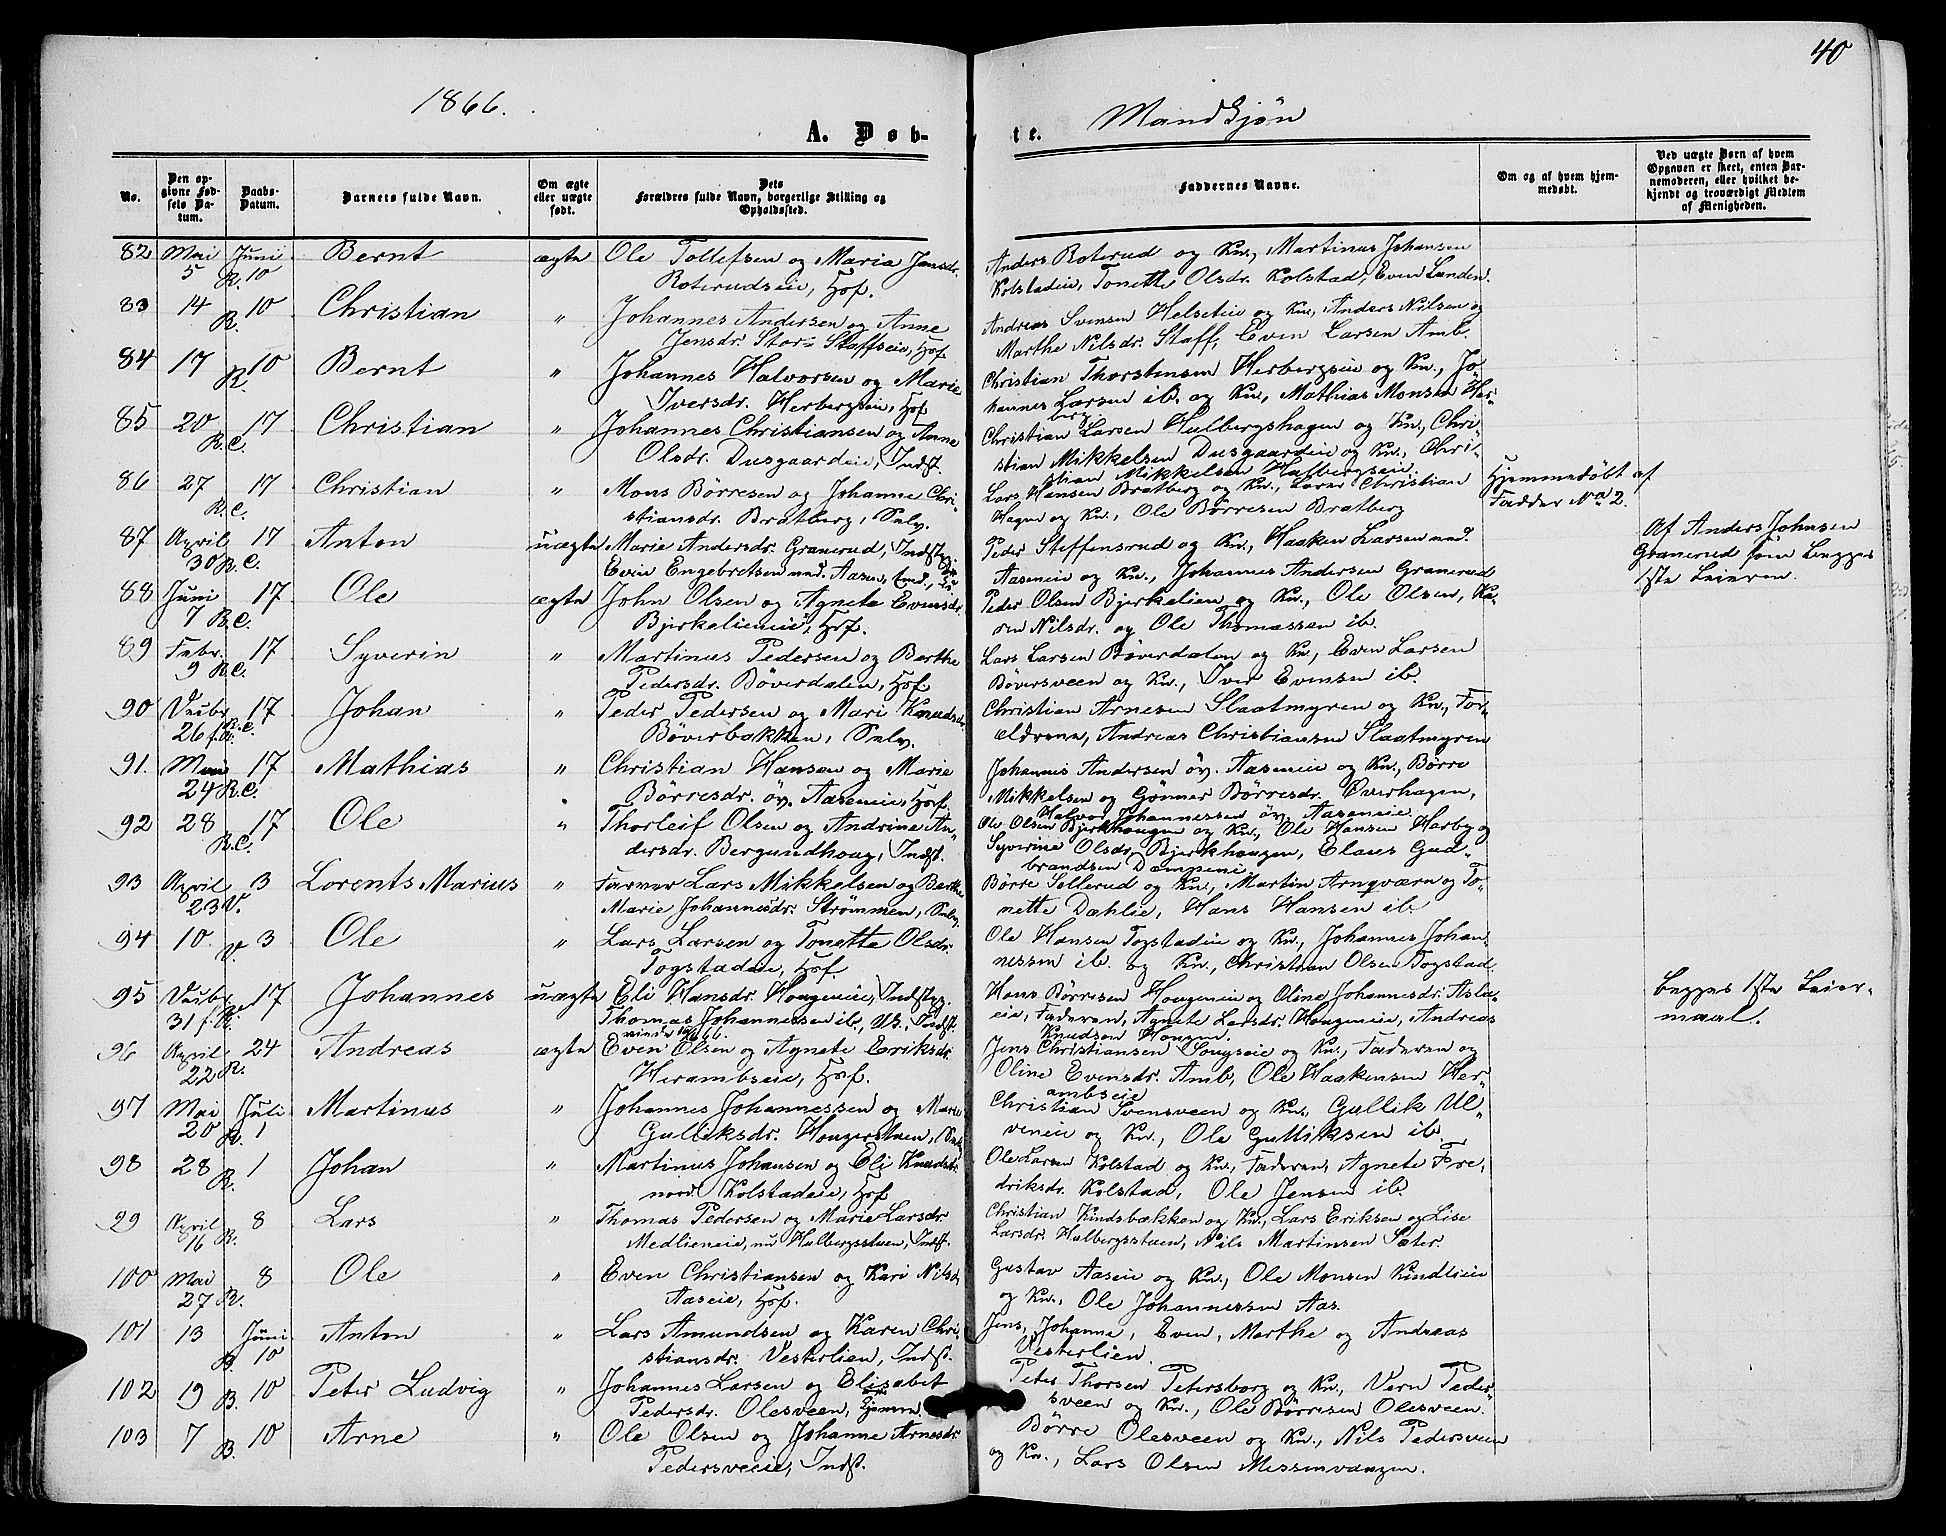 40
1866.
Mandkjøn
A. Døb-
te.
No.
Den op-
givne Fød-
sels Da-
tum.
Daabs-
Datum.
Barnets fulde Navn.
Om ægte
eller uægte
født.
Dets
Forældres fulde Navn, borgerlige Stilling og
Opholdssted.
Faddernes Navne.
Om og af hvem hjem-
medøbt.
Ved uægte Børn af hvem
Opgaven er skeet, enten Bar-
nemoderen, eller hvilket be-
kjendt og troværdigt Medlem
af Menigheden.
82 Mai 5 Juni R. 10 Bernt ægte Ole Tollefsen og Maria Jensdr.
Roterudseie, Hof.
Anders Roterud og Kn., Martinus Johansen
Kolstadeie, Tonette Olsdr. Kolstad, Even Landen.
83 14 R. 10 Christian " Johannes Andersen og Anne
Jensdr. Stor-Staffseie, Hof.
Andreas Svensen Helseteie og Kn., Anders Nilsen og
Marthe Nilsdr. Staff, Even Larsen Amb.
84 17 R. 10 Bernt " Johannes Halvorsen og Marie
Iversdr. Herbergseie, Hof
Christian Thorstensen Herbergseie og Kn., Jo-
hannes Larsen ib. og Kn., Mathias Monsen Her-
berg
85 20 R.C. 17 Christian " Johannes Christiansen og Anne
Olsdr. Dusgaardeie, Indst.
Christian Larsen Hulbergshagen og Kn., Chri-
stian Mikkelsen Dusgaardeie og Kn., Chri-
stian Mikkelsen Hulbergseie.
86 27 R.C. 17 Christian " Mons Börresen og Johanne Chri-
stiansdr. Bratberg, Selv.
Lars Hansen Bratberg og Kn., Lærer Christian
Hagen og Kn., Ole Börresen Bratberg
Hjemmedöbt af
Fadder No 2.
87 April 30 R.C. 17 Anton uægte Marie Andersdr. Granerud, Indstpg.
Even Engebretsen ned. Aasen,
Peder Steffensrud og Kn., Haaken Larsen ned.
Aaseneie og Kn., Johannes Andersen Granerud
Af Anders Johnsen
Granerud som begges
1ste Leierm.
88 Juni 7 R.C. 17 Ole ægte John Olsen og Agnete Evensdr.
Bjerkelieneie, Hof.
Peder Olsen Bjerkelien og Kn., Ole Olsen, Ka-
ren Nilsdr. og Ole Thomassen ib.
89 Febr. 9 R.C. 17 Syverin " Martinus Pedersen og Berthe
Pedersdr. Böverdalen, Hof.
Lars Larsen Böverdalen og Kn., Even Larsen
Böversveen og Kn., Iver Evensen ib.
90 Decbr 26 f.A. R.C. 17 Johan " Peder Pedersen og Mari Knudsdr.
Böverbakken, Selv.
Christian Arnesen Slaatmyren og Kn., For-
ældrene, Andreas Christiansen Slaatmyren
91. Mai 24 R.C. 17 Mathias " Christian Hansen og Marie
Börresdr. öv. Aaseneie, Hof.
Johannes Andersen öv. Aaseneie og Kn., Börre
Mikkelsen og Gönner Börresdr. Överhagen,
Halvor Johannessen öv. Aaseneie.
92 28 R.C. 17 Ole " Thorleif Olsen og Andrine An-
dersdr. Bergundhoug, Indst.
Ole Olsen Bjerkhougen og Kn., Ole Hansen Harby og
Syverine Olsdr. Bjerkhougen, Claus Gud-
brandsen Dæmpeneie,
93 April 23 V. 3 Lorents Marius " Farver Lars Mikkelsen og Berthe
Marie Johannesdr. Strömmen, Selv.
Börre Sollerud og Kn., Martin Arnqværn og To-
nette Dahlie, Hans Hansen ib.
94 10. V. 3 Ole " Lars Larsen og Tonette Olsdr.
Togstadeie, Hof.
Ole Hansen Togstadeie og Kn., Johannes Johan-
nessen ib. og Kn., Christian Olsen Togstad.
95 Decbr 31 f.A. 17 Johannes uægte Eli Hansdr. Hougeneie, Indstpg.
Thomas Johannessen ib., Uk., Indst.
Hans Börresen Hougeneie og Oline Johannesdr. Asla-
eie, Faderen, Agnete Larsdr. Hougeneie, Andreas
Knudsen Hougen.
begges 1ste Leier-
maal.
96 April 22 R. 24 Andreas ægte Even Olsen og Agnete Eriksdr.
Herambseie, Hof.
Jens Christiansen Sougseie og Kn., Faderen og
Oline Evensdr. Amb, Ole Haakensen Her-
ambseie
97 Mai 20 Juli R. 1 Martinus " Johannes Johannessen og Marie
Gulliksdr. Hougerstuen, Selv.
Christian Svensveen og Kn., Gullik Ul-
veneie og Kn., Ole Gulliksen ib.
98 28 R. 1 Johan " Martinus Johansen og Eli Knudsdr.
nord. Kolstadeie, Hof
Ole Larsen Kolstad og Kn., Faderen, Agnete Fre-
driksdr. Kolstad, Ole Jensen ib.
99 April 16 R. 8 Lars " Thomas Pedersen og Marie Larsdr.
Medlieneie, nu Hulbergsstuen, Indst.
Christian Kindsbækken og Kn., Lars Eriksen og Lise
Larsdr. Hulbergsstuen, Nils Martinsen Sæter.
100 Mai 27 R. 8 Ole " Even Christiansen og Kari Nilsdr.
Aaseie, Hof.
Gustav Aaseie og Kn., Ole Monsen Kindlieie
og Kn., Ole Johannessen Aas.
101 13 Juni B. 10 Anton " Lars Amundsen og Karen Chri-
stiansdr. Vesterlien, Indst.
Jens, Johanne, Even, Marthe og Andreas
Vesterlien.
102 19 B. 10 Peter Ludvig " Johannes Larsen og Elisabet
Pedersdr. Olesveen,
Peter Thorsen Petersborg og Kn., Vern Peder-
sveen og Kn., Ole Börresen Olesveen.
103 7 B. 10 Arne " Ole Olsen og Johanne Arnesdr.
Pedersveeie, Indst.
Börre Olesveen og Kn., Nils Pedersveen
og Kn., Lars Olsen Messenvangen.